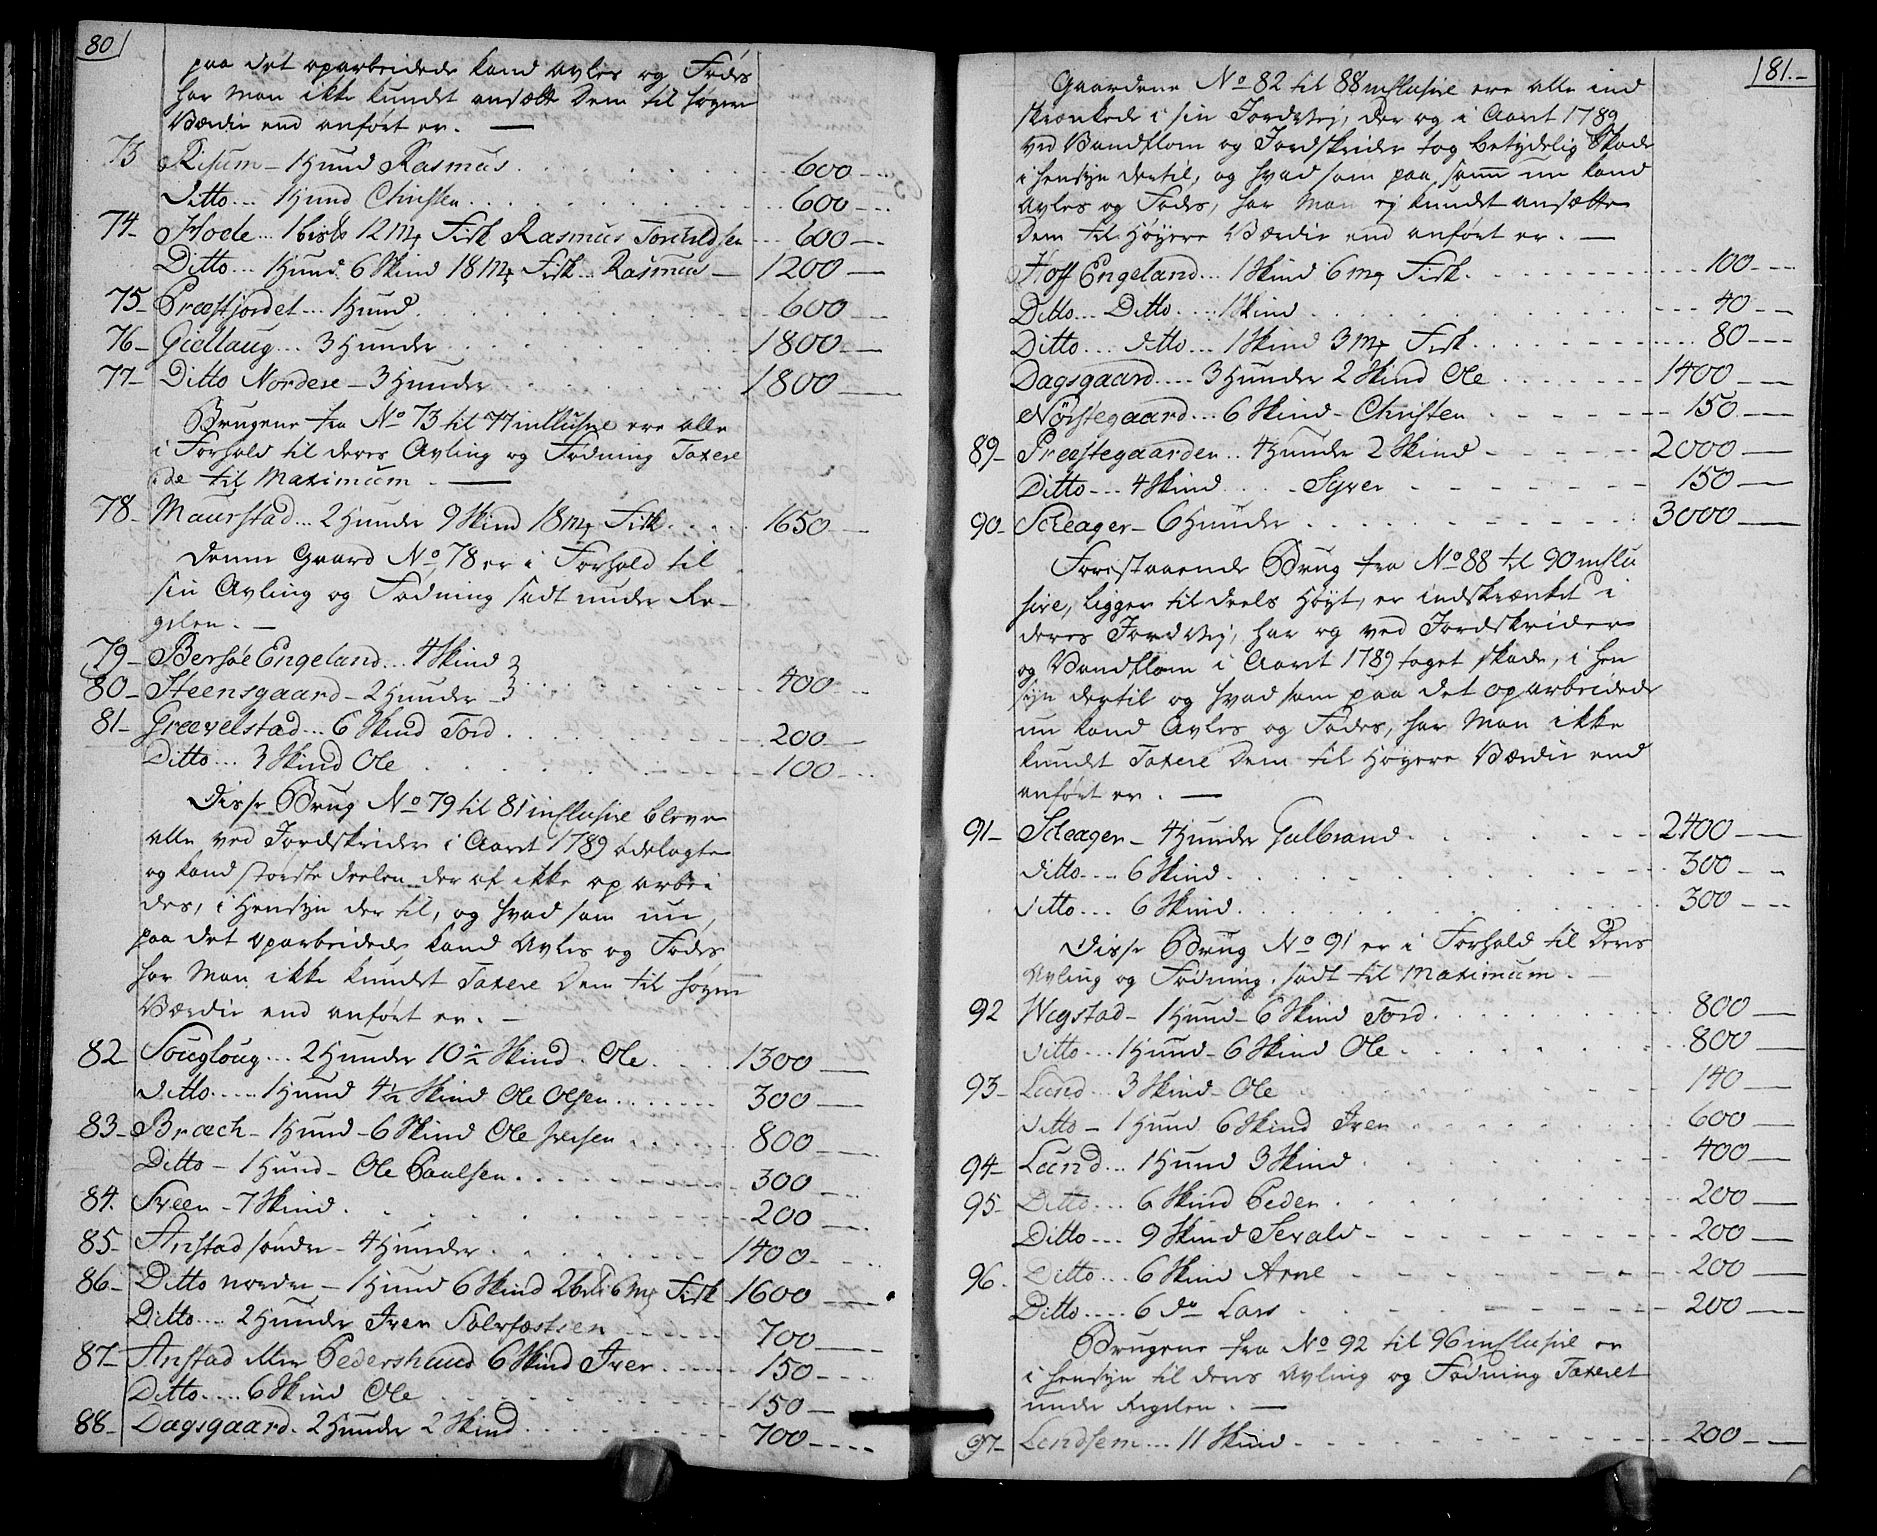 80
paa det oparbeidede kand avles og Fødes
har man ikke kundet ansætte Dem til høyere
Værdie end anført er. —
73 Risum - 1 Hund Rasmus 600
Ditto 1 Hund Christen 600
74 Hode 1 bisk 12 mk Fisk Rasmus Torchildsen 600
Ditto 1 Hund 6 Skind 18 mk Fisk Rasmus 1200
75 Præstjordet 1 Hund 600
76 Giellaug 3 Hunder 1800
77 Ditto Nordere 3 Hunder 1800
Brugene fra No 73 til 77 inclusive ere alle
i Forhold til deres Avling og Fødning Taxere
de til Maximum. —
78 Maurstad 2 Hunder 9 Skind 18 mk Fisk 1650
Denne Gaard No 78 er i Forhold til
sin Avling og Fødning sadt under Re-
gelen. —
79 Bersøe Engeland 4 Skind
80 Steensgaard 2 Hunder 400
81 Grævelstad 6 Skind Tord 200
Ditto 3 Skind Ole 100
Disse Brug No 79 til 81 inclusive bleve
alle ved Jordskrider i Aaret 1789 ødelagte
og kand største deelen der af ikke oparbei
des, i Hensyn der til, og hvad som nu,
paa det oparbeidede kand Avles og Fødes,
har Man ikke kundet Taxere Dem til høyere
Værdie end anført er. —
82 Sougloug 2 Hunder 10 1/2 Skind Ole 1300
Ditto 1 Hund 4 1/2 Skind Ole Olsen 300
83 Bræch - 1 Hund - 6 Skind Ole Iversen 800
Ditto - 1 Hund - Ole Poulsen 300
84. Sveen - 7 Skind 200
85 Anstad søndre - 4 Hunder 1400
86 Ditto nordre - 1 Hund 6 Skind 2 6 mk Fisk 1600
Ditto 2 Hunder Iver Solvfæstsen 700
87 Anstad eller Pedershuud 6 Skind Iver 150
Ditto 6 Skind Ole 150
88 Dagsgaard. 2 Hunder 2 Skind 700
81.
Gaardene No 82 til 88 inclusive ere alle ind
skrænkede i sin Jordvej, der og i Aaret 1789
ved Vandflom og Jordskrider tog betydelig Skade
i hensyn dertil, og hvad som paa samme nu kand
Avles og Fødes, har Man ej kundet ansætte
Dem til Høyere Værdie end anført er. —
Hoff Engeland 1 Skind 6 mk Fisk 100
Ditto Ditto 1 Skind 40
Ditto ditto 1 Skind 3 mk Fisk 80
Dagsgaard 3 Hunder 2 Skind Ole 1400
Nörstegaard 6 Skind - Christen 150
89 Præstegaarden 4 Hunder 2 Skind 2000
Ditto 4 Skind Syver 150
90 Scleager - 6 Hunder 3000
Forestaaende Brug fra No 88 til 90 inclu
sive, ligger til deels Høyt, er indskrænket i
deres Jordvej, har og ved Jordskrider
og Vandflom i Aaret 1789 taget skade, i hen
syn dertil og hvad som paa det oparbeidede
nu kand Avles og Fødes, har Man ikke
kundet Taxere Dem til Høyere Værdie end
anført er. —
91 Scleager - 4 Hunder Gulbrand 2400
ditto 6 Skind 300
ditto 6 Skind 300
Disse Brug No 91 er i Forhold til Deres
Avling og Fødning, sadt til Maximum. —
92 Wigstad - 1 Hund - 6 Skind Tord 800
ditto 1 Hund - 6 Skind Ole 800
93 Lund 3 Skind - Ole 140
ditto - 1 Hund 6 Skind Iver 600
94 Lund 1 Hund 3 Skind 400
95 Ditto 6 Skind Peder 200
Ditto 9 Skind Sevald 200
96. Ditto 6 Skind Arne 200
Ditto 6 do Lars 200
Brugene fra No 92 til 96 inclusive er
i hensyn til deres Avling og Fødning Taxeret
under Regelen. —
97 Lundsem 11 Skind 200